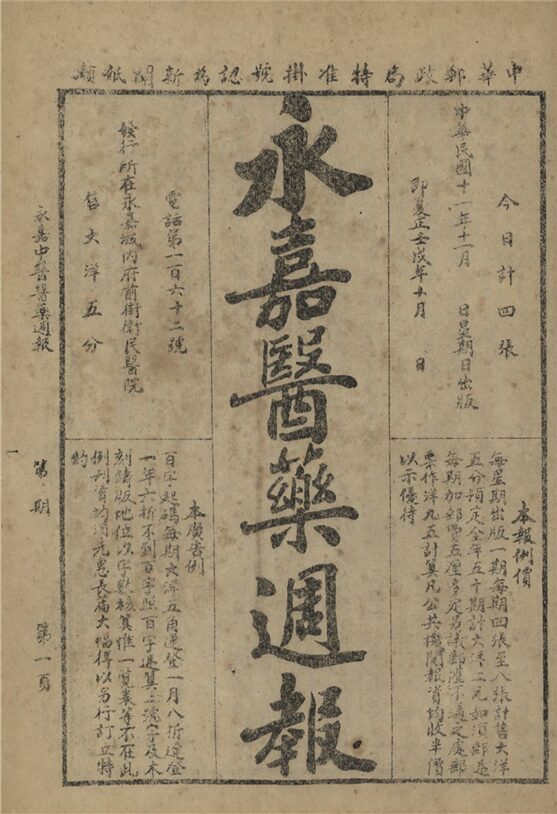 中華郵政局特准掛號認為新聞紙類
今日計四張
中華民國十一年十二月　日星期日出版
即夏正壬戌年十月　日
本報例價
每星期出版一期每期四張至八張計售大洋
五分預定全年五十期計大洋二元如須郵遞
每期加郵費五厘多定另議郵滙不通之處郵
票作洋九五計算凡公共機關報資均收半價
以示優待
永嘉醫藥週報
電話第一百六十二號
發行所在永嘉城內府前街衛民醫院
售大洋五分
本廣告例
百字起碼每期大洋五角連登一月八折連登
一年六折不到百字照百字遞算二號字及木
刻鑄版地位以字數核算惟一覽表等不在此
例刊資均須先惠長篇大幅得以另行訂立特
約
永嘉中醫醫藥週報
第一期
第一頁